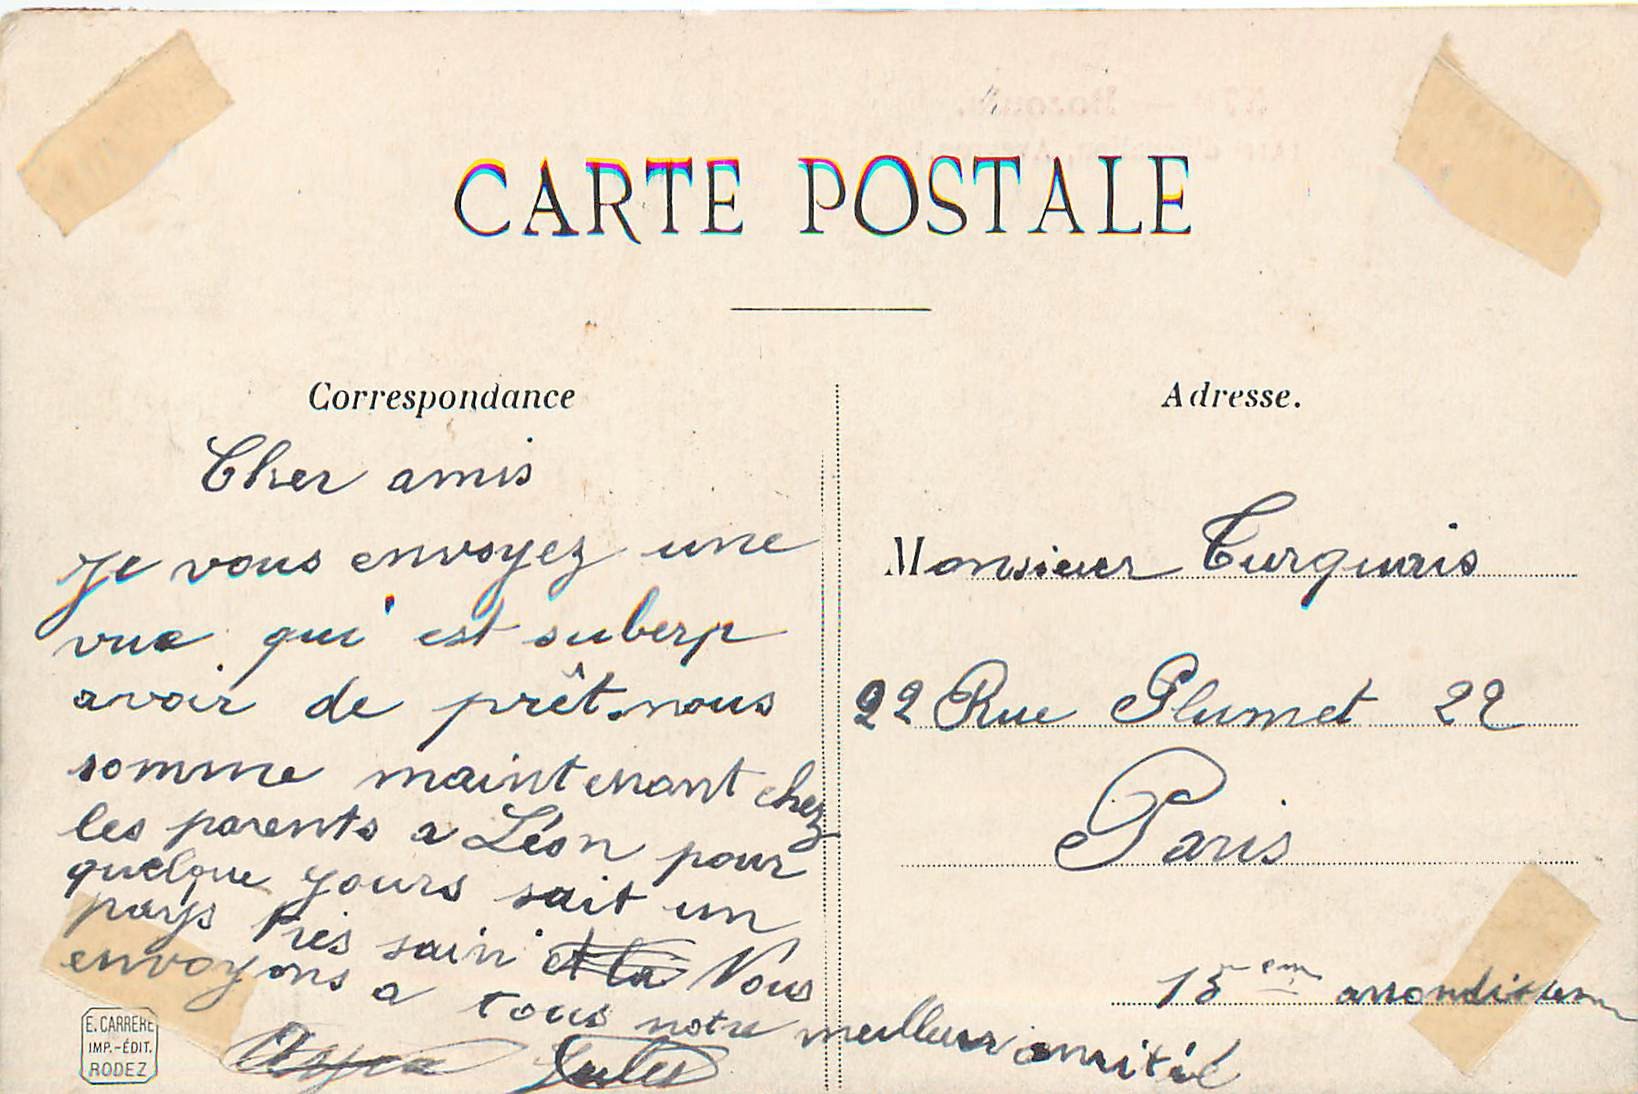 CARTE POSTALE
Correspondance
Cher amis
je vous envoyez une
vue qui est suberp
avoir de prêt. nous
somme maintenant chez
les parents a Léon pour
quelque yours sait un
pays tres sain et la Nous
envoyons a tous notre meilleur amitié
Jules
E. CARRERE
IMP.-ÉDIT.
RODEZ
Adresse.
Monsieur Turquais
22 Rue Plumet 22
Paris
15 em arrondissem